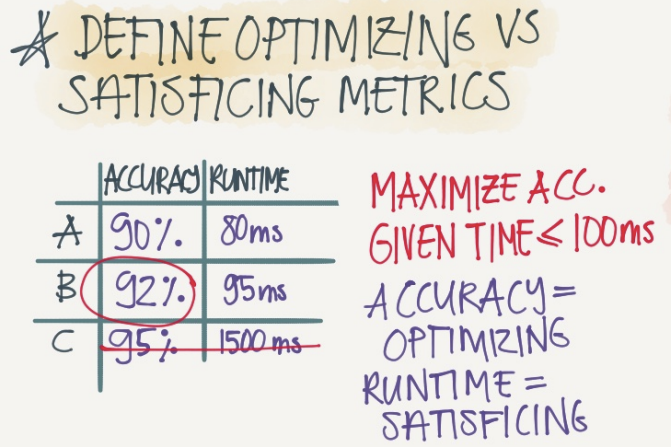 DEFINE OPTIMIZING VS
SATISFICING METRICS
ACCURACY RUNTIME
A 90% 80ms
B 92% 95ms
C 95% 1500 ms
MAXIMIZE ACC.
GIVEN TIME ≤ 100ms
ACCURACY =
OPTIMIZING
RUNTIME =
SATISFICING